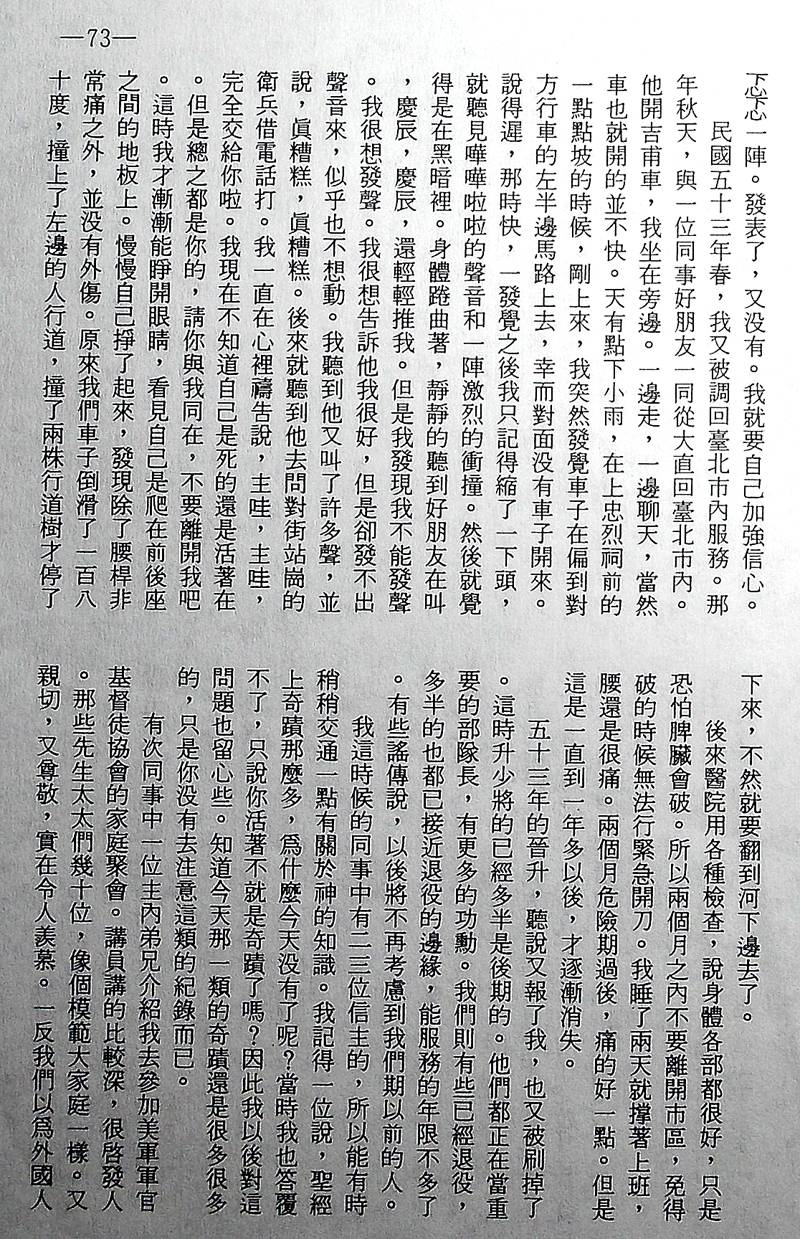 —73—
忐忑一陣。發表了，又没有。我就要自己加強信心。
民國五十三年春，我又被調回臺北市內服務。那
年秋天，與一位同事好朋友一同從大直回臺北市內。
他開吉甫車，我坐在旁邊。一邊走，一邊聊天，當然
車也就開的並不快。天有點下小雨，在上忠烈祠前的
一點點坡的時候，剛上來，我突然發覺車子在偏到對
方行車的左半邊馬路上去，幸而對面没有車子開來。
說得遲，那時快，一發覺之後我只記得縮了一下頭，
就聽見嘩嘩啦啦的聲音和一陣激烈的衝撞。然後就覺
得是在黑暗裡。身體踡曲著，靜靜的聽到好朋友在叫
，慶辰，慶辰，還輕輕推我。但是我發現我不能發聲
。我很想發聲。我很想告訴他我很好，但是卻發不出
聲音來，似乎也不想動。我聽到他又叫了許多聲，並
說，眞糟糕，眞糟糕。後來就聽到他去問對街站崗的
衛兵借電話打。我一直在心裡禱告說，主哇，主哇，
完全交給你啦。我現在不知道自己是死的還是活著在
。但是總之都是你的，請你與我同在，不要離開我吧
。這時我才漸漸能睜開眼睛，看見自己是爬在前後座
之間的地板上。慢慢自己掙了起來，發現除了腰桿非
常痛之外，並没有外傷。原來我們車子倒滑了一百八
十度，撞上了左邊的人行道，撞了兩株行道樹才停了
下來，不然就要翻到河下邊去了。
後來醫院用各種檢查，說身體各部都很好，只是
恐怕脾臟會破。所以兩個月之內不要離開市區，免得
破的時候無法行緊急開刀。我睡了兩天就撑著上班，
腰還是很痛。兩個月危險期過後，痛的好一點。但是
這是一直到一年多以後，才逐漸消失。
五十三年的晉升，聽說又報了我，也又被刷掉了
。這時升少將的已經多半是後期的。他們都正在當重
要的部隊長，有更多的功勳。我們則有些已經退役，
多半的也都已接近退役的邊緣，能服務的年限不多了
。有些謠傳說，以後將不再考慮到我們期以前的人。
我這時候的同事中有二三位信主的，所以能有時
稍稍交通一點有關於神的知識。我記得一位說，聖經
上奇蹟那麼多，爲什麼今天没有了呢？當時我也答覆
不了，只說你活著不就是奇蹟了嗎？因此我以後對這
問題也留心些。知道今天那一類的奇蹟還是很多很多
的，只是你没有去注意這類的紀錄而已。
有次同事中一位主內弟兄介紹我去參加美軍軍官
基督徒協會的家庭聚會。講員講的比較深，很啓發人
。那些先生太太們幾十位，像個模範大家庭一樣。又
親切，又尊敬，實在令人羨慕。一反我們以爲外國人